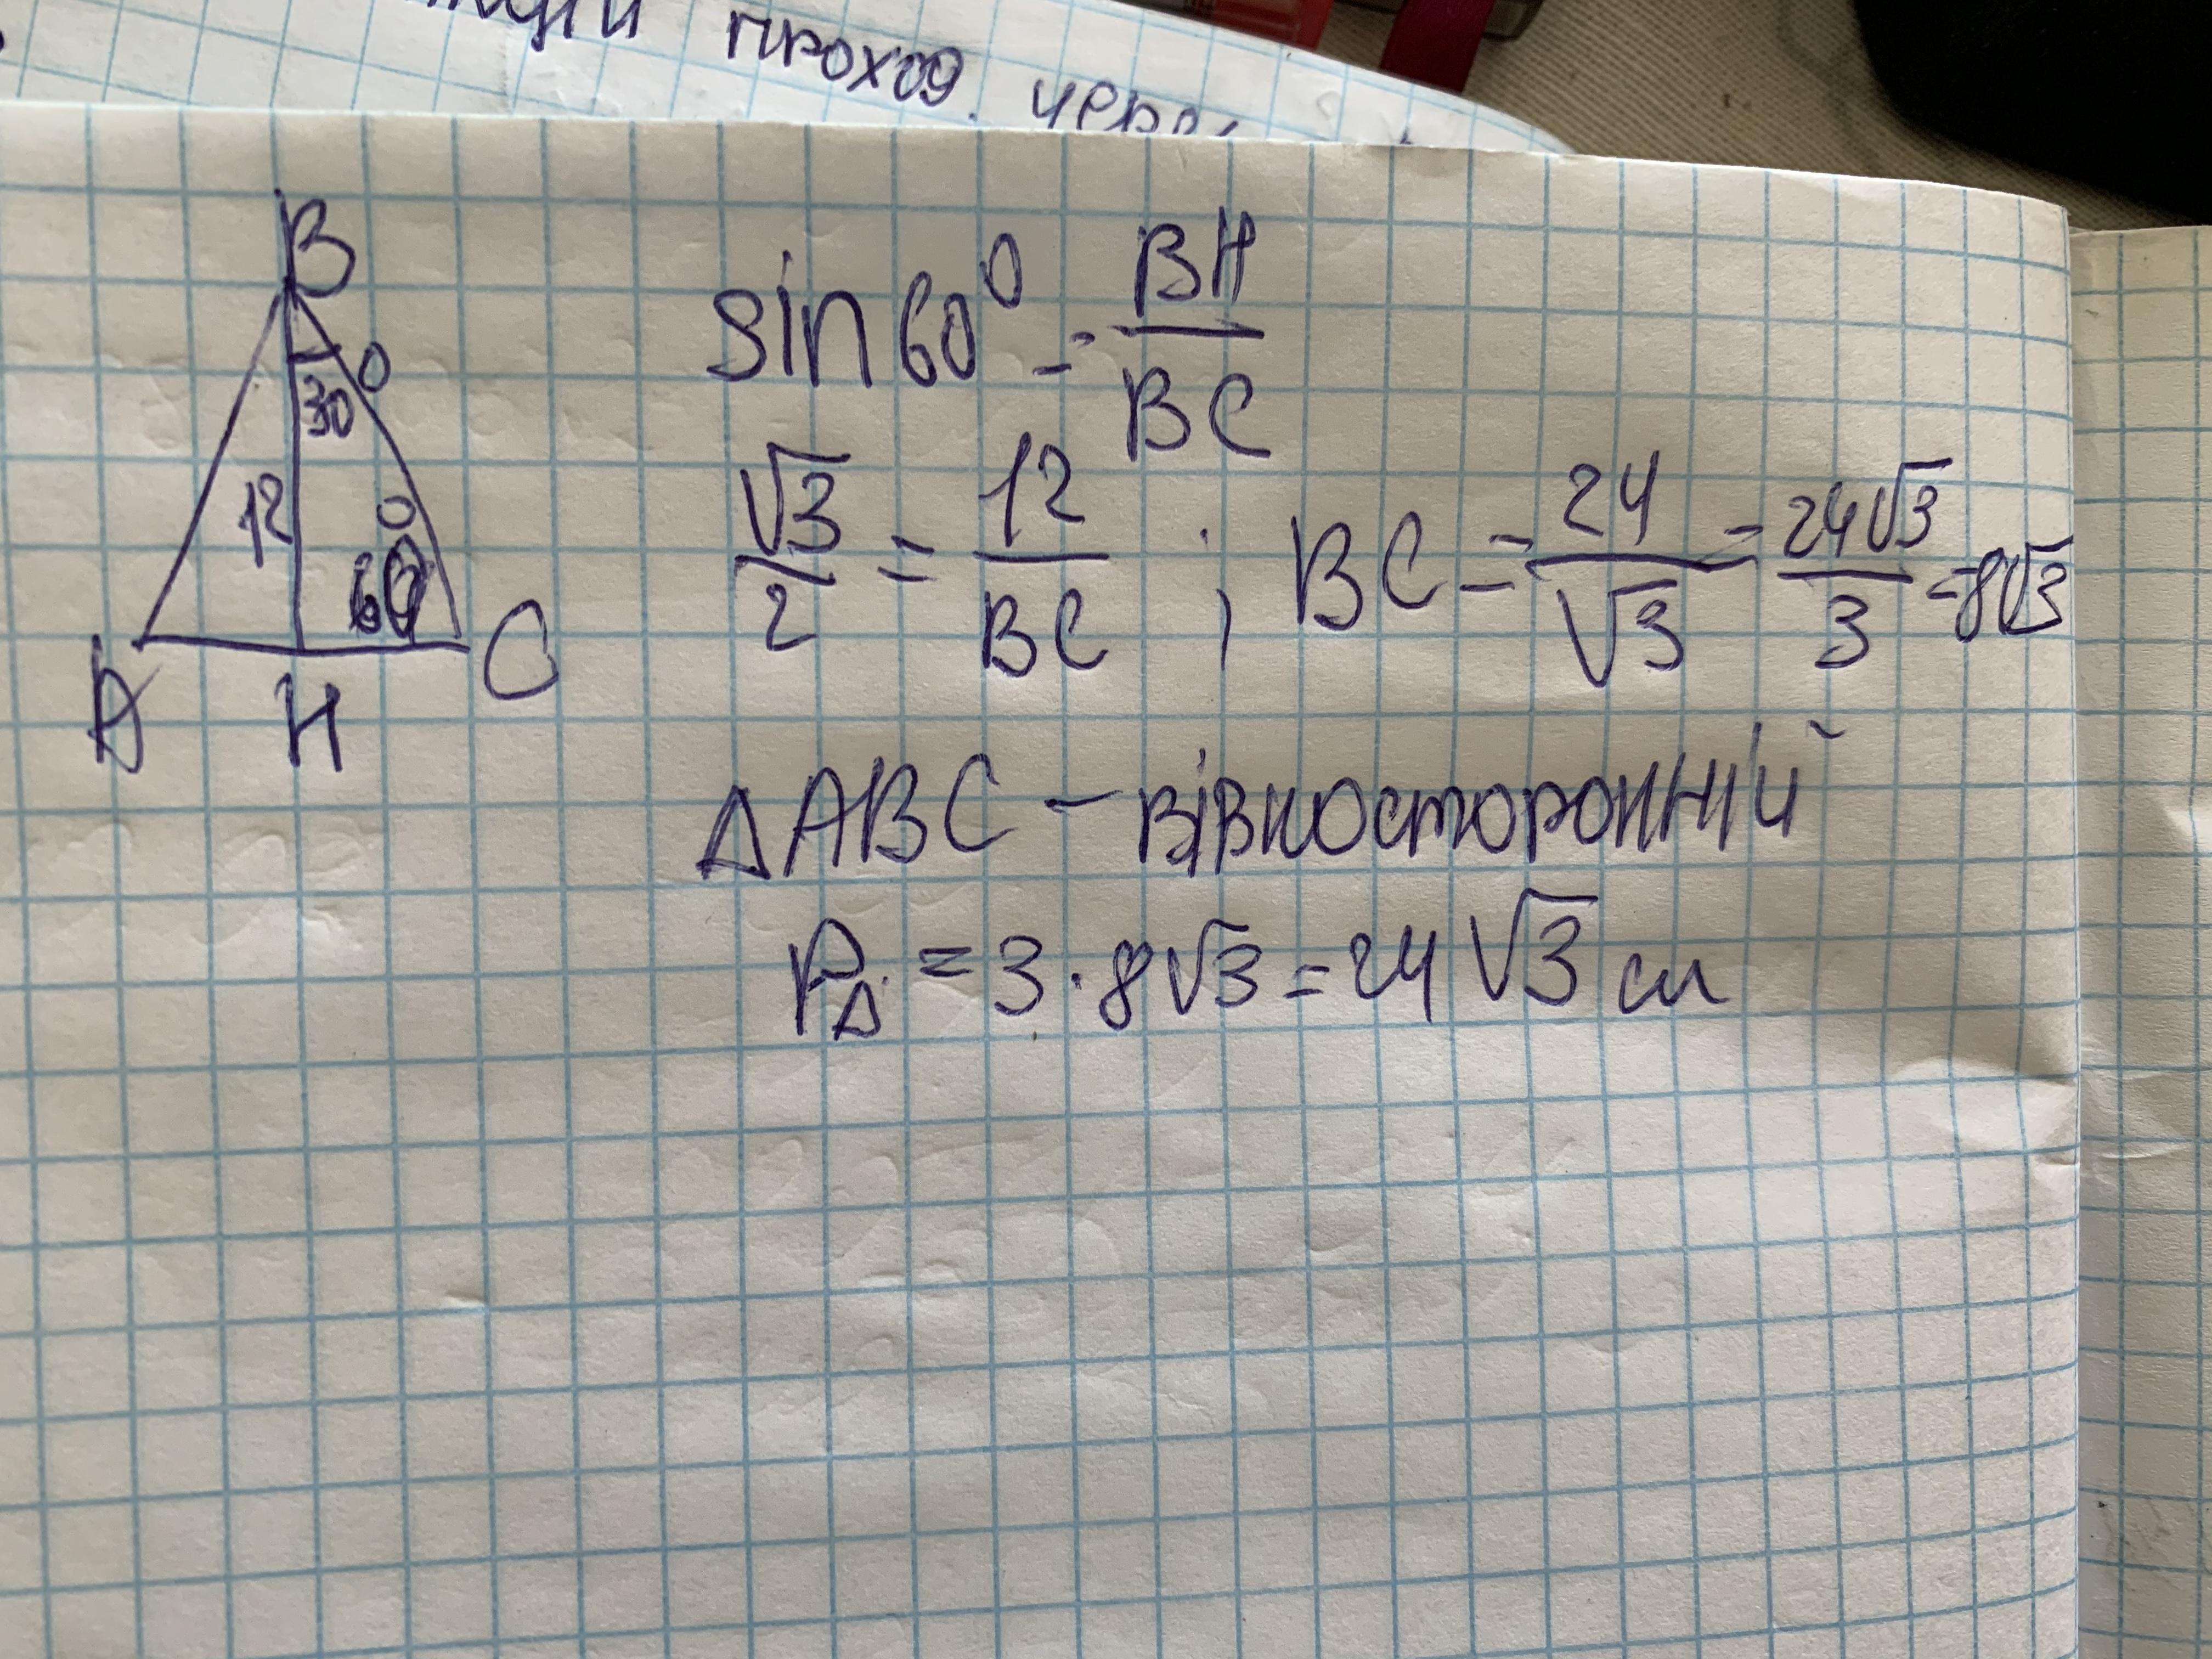 проход. через
B
30°
12
60°
A H C
sin 60° = BH/BC
√3/2 = 12/BC ; BC = 24/√3 = 24√3/3 = 8√3
△ABC – рівносторонній
P△ = 3 · 8√3 = 24√3 см